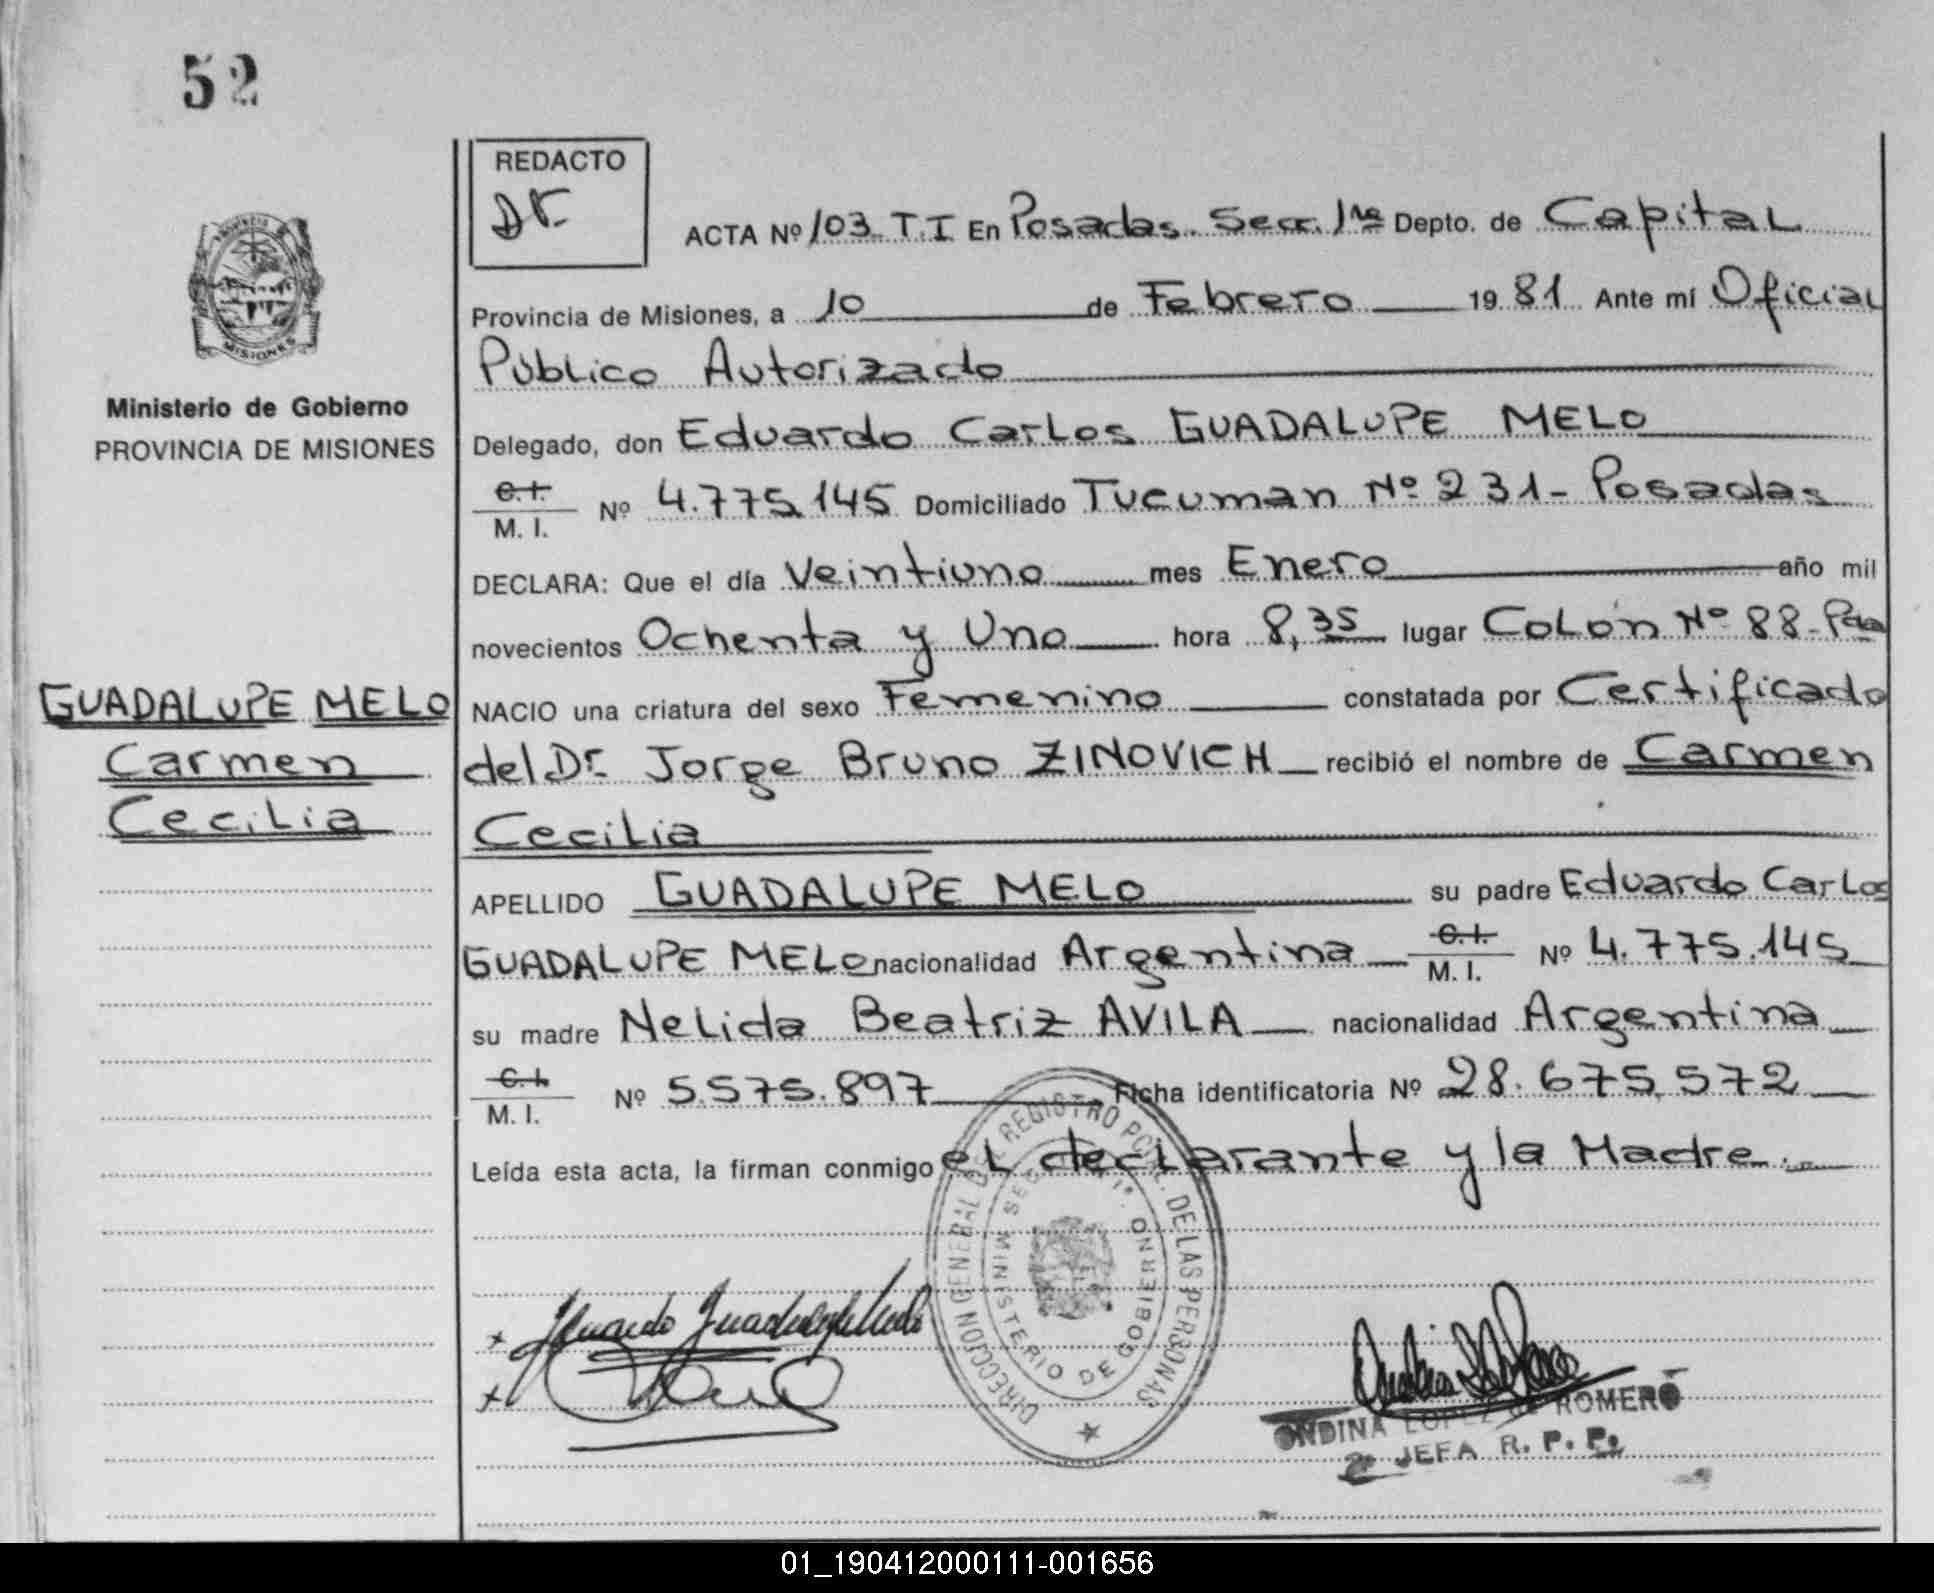 52
REDACTO
ACTA Nº 103 T.I En Posadas. Secc. 1ra Depto. de Capital
Provincia de Misiones, a 10 de Febrero 1981 Ante mí Oficial
Público Autorizado
PROVINCIA
MISIONES
Ministerio de Gobierno
PROVINCIA DE MISIONES
Delegado, don Eduardo Carlos GUADALUPE MELO
C.I.
M. I. Nº 4.775.145 Domiciliado Tucuman Nº 231- Posadas
DECLARA: Que el día Veintiuno mes Enero año mil
novecientos Ochenta y Uno hora 8,35 lugar Colón Nº 88- Pdas
GUADALUPE MELO
Carmen
Cecilia
NACIO una criatura del sexo Femenino constatada por Certificado
del Dr. Jorge Bruno ZINOVICH recibió el nombre de Carmen
Cecilia
APELLIDO GUADALUPE MELO su padre Eduardo Carlos
GUADALUPE MELO nacionalidad Argentina C.I. M. I. Nº 4.775.145
su madre Nelida Beatriz AVILA nacionalidad Argentina
C.I.
M. I. Nº 5.575.897 Ficha identificatoria Nº 28.675.572
Leída esta acta, la firman conmigo el declarante y la Madre.
DIRECCION GENERAL DEL REGISTRO PCIAL. DE LAS PERSONAS
MINISTERIO DE GOBIERNO
ONDINA LOPEZ DE ROMERO
2ª JEFA R. P. P.
01_190412000111-001656